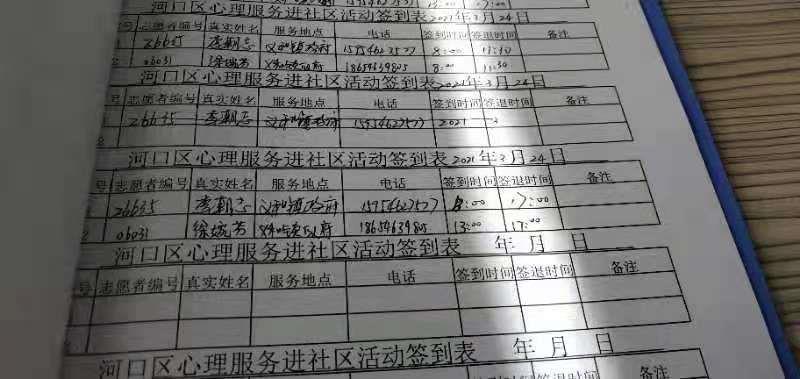 河口区心理服务进社区活动签到表2021年3月24日
号 志愿者编号 真实姓名 服务地点 电话 签到时间 签退时间 备注
李朝志 义和镇政府 8:00
06031 8:00 11:30
河口区心理服务进社区活动签到表2021年3月24日
号 志愿者编号 真实姓名 服务地点 电话 签到时间 签退时间 备注
26635 李朝志 义和镇政府 2021
河口区心理服务进社区活动签到表2021年3月24日
号 志愿者编号 真实姓名 服务地点 电话 签到时间 签退时间 备注
26635 李朝志 义和镇政府 17:00
06031 义和镇政府 18654639805 13:00 17:00
河口区心理服务进社区活动签到表 年 月 日
号 志愿者编号 真实姓名 服务地点 电话 签到时间 签退时间 备注
河口区心理服务进社区活动签到表 年 月 日
志愿者编号 真实姓名 服务地点 电话 签到时间 签退时间 备注